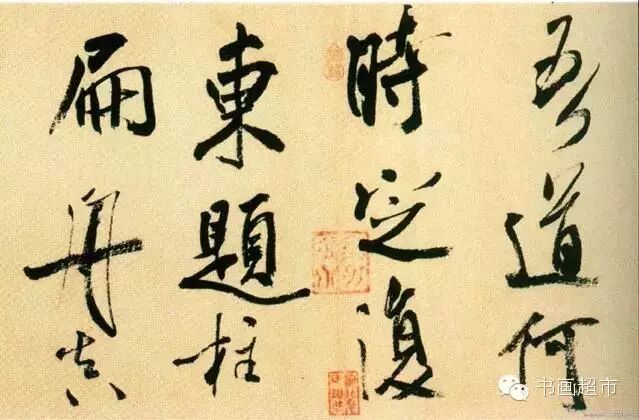 吾道何
時定復
東題柱
扁舟真
书画超市